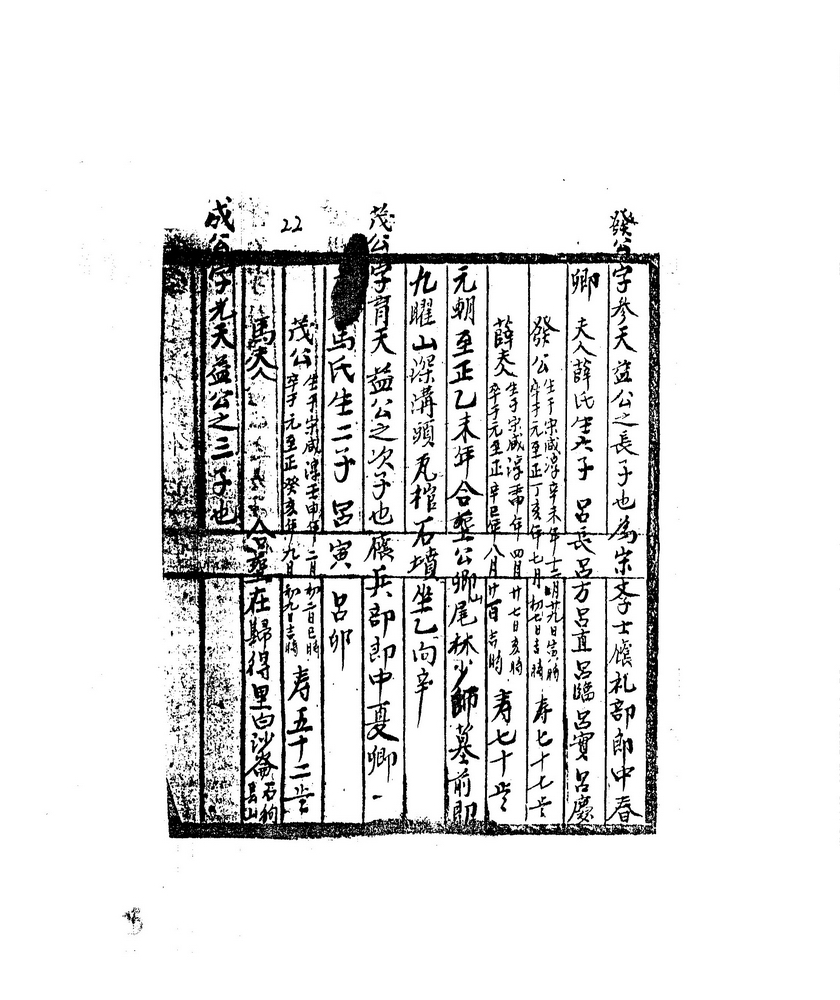 發公字参天益公之長子也為宋李士價礼部郎中春
卿 夫人薛氏生六子 呂長呂方呂直呂臨呂寶呂慶
發公 生于宋咸淳辛未年十二月廿九日寅時 卒于元至正丁亥年七月初七日吉時 寿七十七岁
薛夫人 生于宋咸淳 年四月廿七日亥時 卒于元至正辛巳年八月廿日吉時 寿七十岁
元朝至正乙未年合塟公卿山尾林少師墓前即
九曜山深溝頭瓦棺石墳坐乙向辛
茂公字育天益公之次子也 兵部郎中夏卿
馬氏生二子 呂寅 呂卯
茂公 生于宋咸淳壬申年二月初二日巳時 卒于元至正癸亥年九月初九日吉時 寿五十二岁
馬夫人 合塟在歸得里白沙崙石狗 山
成公字光天益公之三子也
22